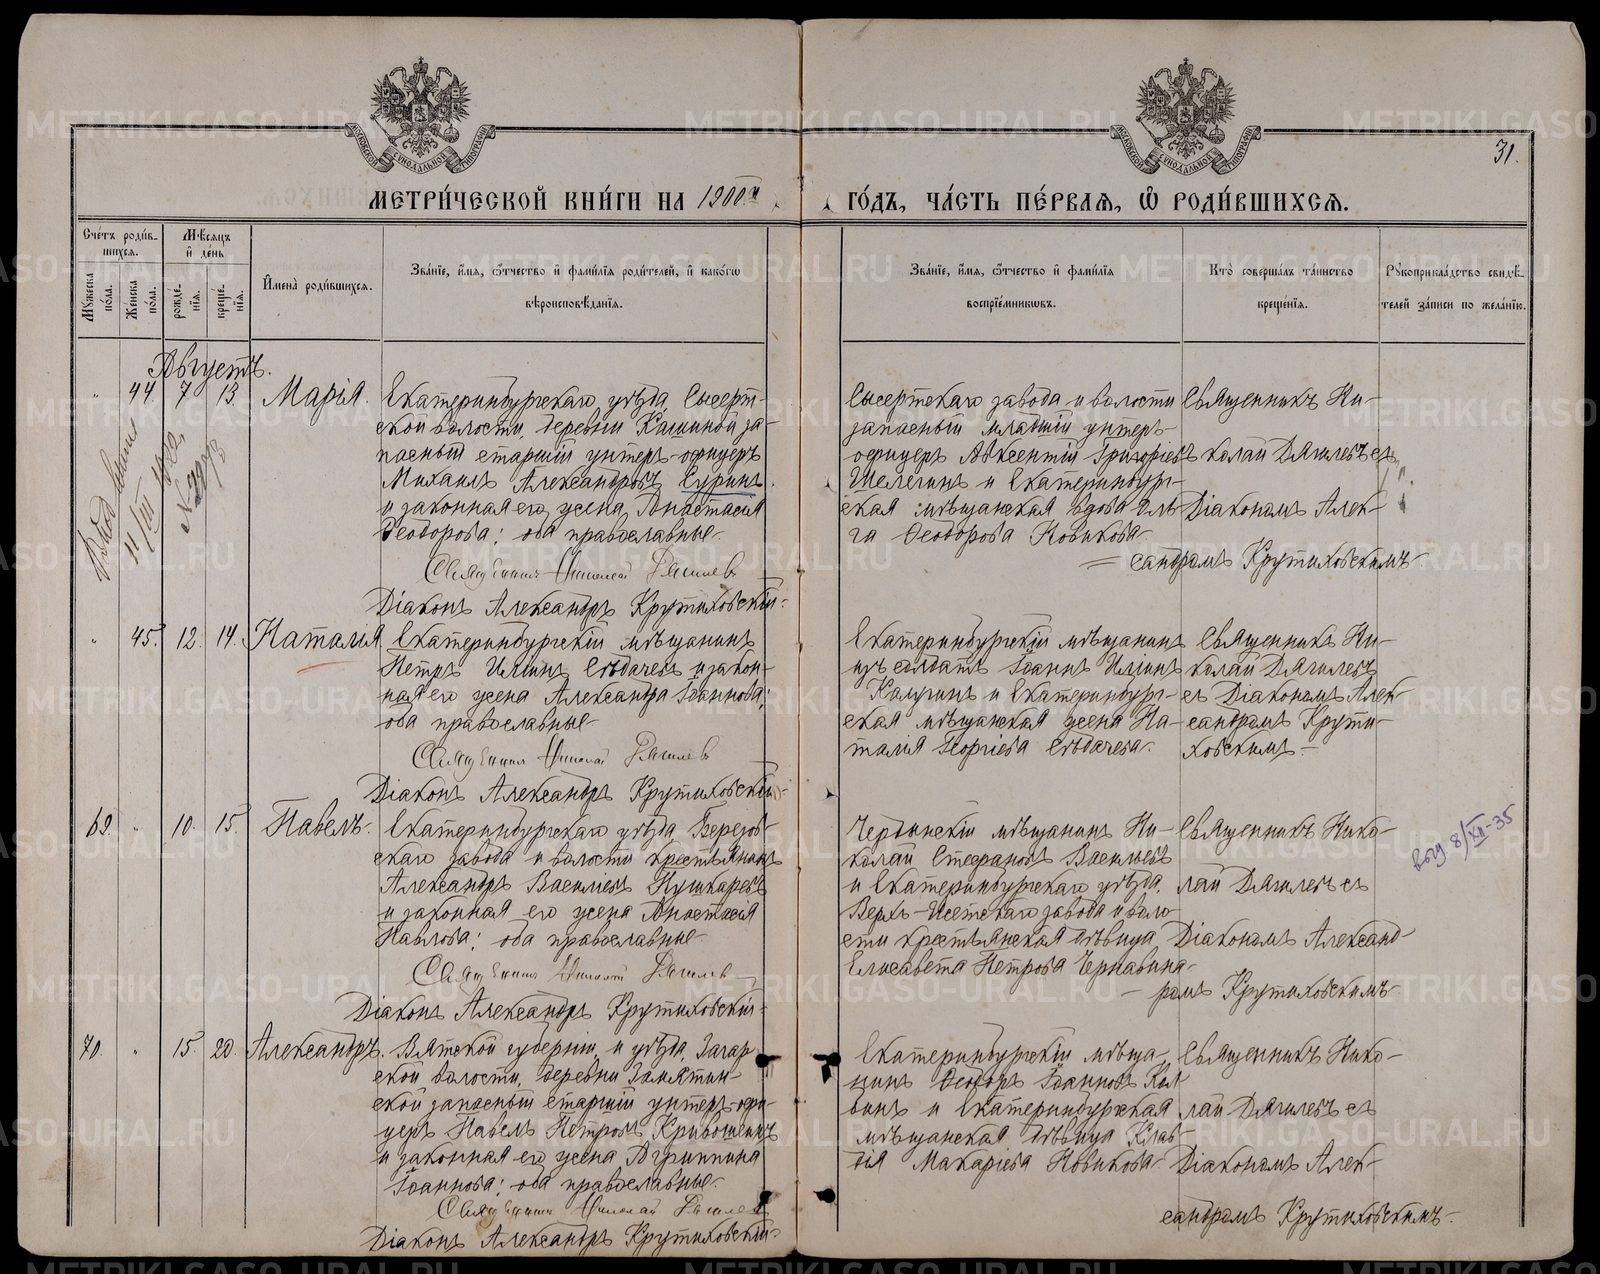 31.
МЕТРИ́ЧЕСКОЙ КНИ́ГИ НА 1900й
ГО́ДЪ, ЧА́СТЬ ПЕ́РВАЯ, Ѽ РОДИ́ВШИХСЯ.
Сче́тъ роди́вшихся.
Мѣ́сяцъ и҆ де́нь
Мꙋ́жеска по́ла.
Же́нска по́ла.
рожде́нїѧ.
креще́нїѧ.
И҆мена̀ роди́вшихсѧ.
Зва́нїе, и҆́мѧ, ѻ҆́тчество и҆ фами́лїѧ роди́телей, и҆ како́гѡ
вѣроисповѣ́данїѧ.
Зва́нїе, и҆́мѧ, ѻ҆́тчество и҆ фами́лїѧ
воспрїе́мникѡвъ.
Кто̀ соверша́лъ та́инство
креще́нїѧ.
Рꙋкоприкла́дство свидѣ́-
телей за́писи по жела́нїю.
Августъ.
" 44 7 13. Марія.
Екатеринбургскаго уѣзда Сысерт-
ской волости, деревни Кашиной за-
пасный старшій унтеръ-офицеръ
Михаилъ Александровъ Суринъ
и законная его жена Анастасія
Ѳеодорова; оба православные.
Священникъ Николай Дягилевъ
Діаконъ Александръ Крутиховскій.
Сысертскаго завода и волости
запасный младшій унтеръ-
офицеръ Авксентій Григорьевъ
Шелегинъ и Екатеринбург-
ская мѣщанская вдова Оль-
га Ѳеодорова Новикова.
Священникъ Ни-
колай Дягилевъ съ
Діакономъ Алек-
сандромъ Крутиховскимъ.
" 45. 12. 14. Наталія
Екатеринбургскій мѣщанинъ
Петръ Ильинъ Сѣдачевъ и закон-
ная его жена Александра Іоаннова;
оба православные.
Священникъ Николай Дягилевъ
Діаконъ Александръ Крутиховскій.
Екатеринбургскій мѣщанинъ
изъ солдатъ Іоаннъ Ильинъ
Калугинъ и Екатеринбург-
ская мѣщанская жена На-
талія Георгіева Сѣдачева.
Священникъ Ни-
колай Дягилевъ
съ Діакономъ Алек-
сандромъ Крути-
ховскимъ.
69. " 10. 15. Павелъ.
Екатеринбургскаго уѣзда Березов-
скаго завода и волости крестьянинъ
Александръ Васильевъ Пушкаревъ
и законная его жена Анастасія
Павлова; оба православные.
Священникъ Николай Дягилевъ
Діаконъ Александръ Крутиховскій.
Чердынскій мѣщанинъ Ни-
колай Стефановъ Васильевъ
и Екатеринбургскаго уѣзда,
Верхъ-Исетскаго завода и воло-
сти крестьянская дѣвица
Елисавета Петрова Чернавина.
Священникъ Нико-
лай Дягилевъ съ
Діакономъ Александ-
ромъ Крутиховскимъ.
8/XII-35
70. " 15. 20. Александръ.
Вятской губерніи и уѣзда, Загар-
ской волости, деревни Замятин-
ской запасный старшій унтеръ-офи-
церъ Павелъ Петровъ Кривошеинъ
и законная его жена Агриппина
Іоаннова; оба православные.
Священникъ Николай Дягилевъ
Діаконъ Александръ Крутиховскій.
Екатеринбургскій мѣща-
нинъ Ѳеодоръ Іоанновъ Кол-
винъ и Екатеринбургская
мѣщанская дѣвица Клав-
дія Макаріева Новикова.
Священникъ Нико-
лай Дягилевъ съ
Діакономъ Алек-
сандромъ Крутиховскимъ.
METRIKI.GASO-URAL.RU